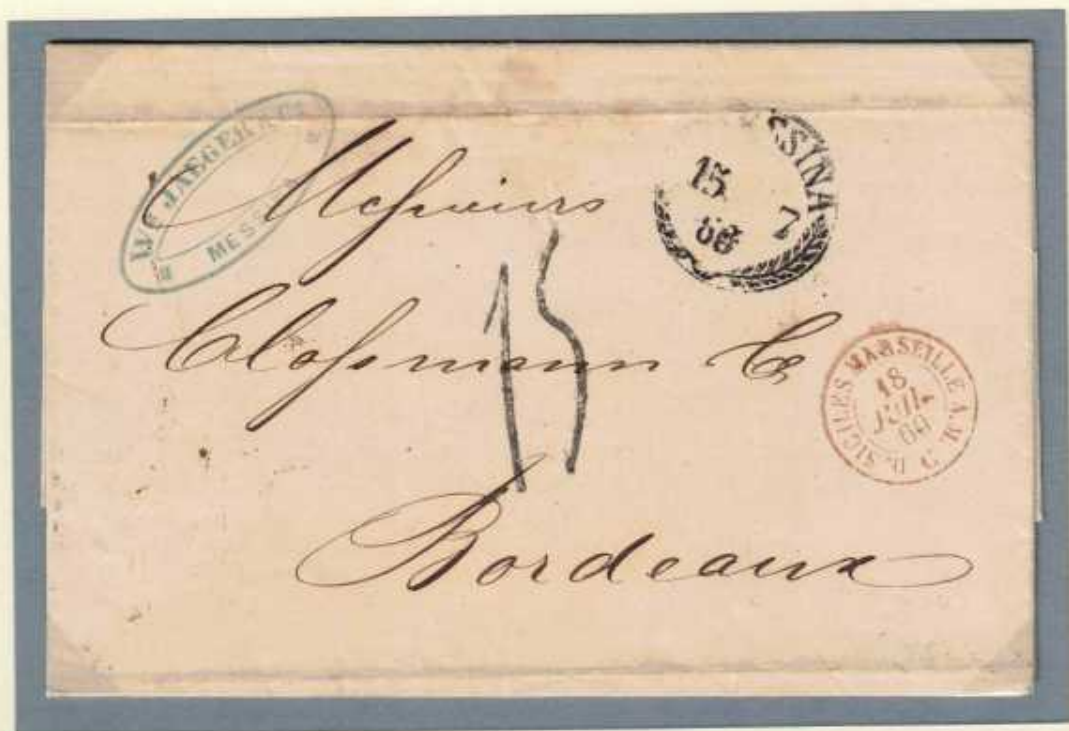 JAEGER & Cº
MESS
SSINA
15
7
60
Messieurs
15
Clossmann
D. SICILES MARSEILLE A.M.
18
JUIL.
60
Bordeaux